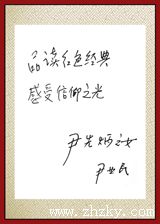 品读红色经典
感受信仰之光
尹先炳之女
www.zhzky.com